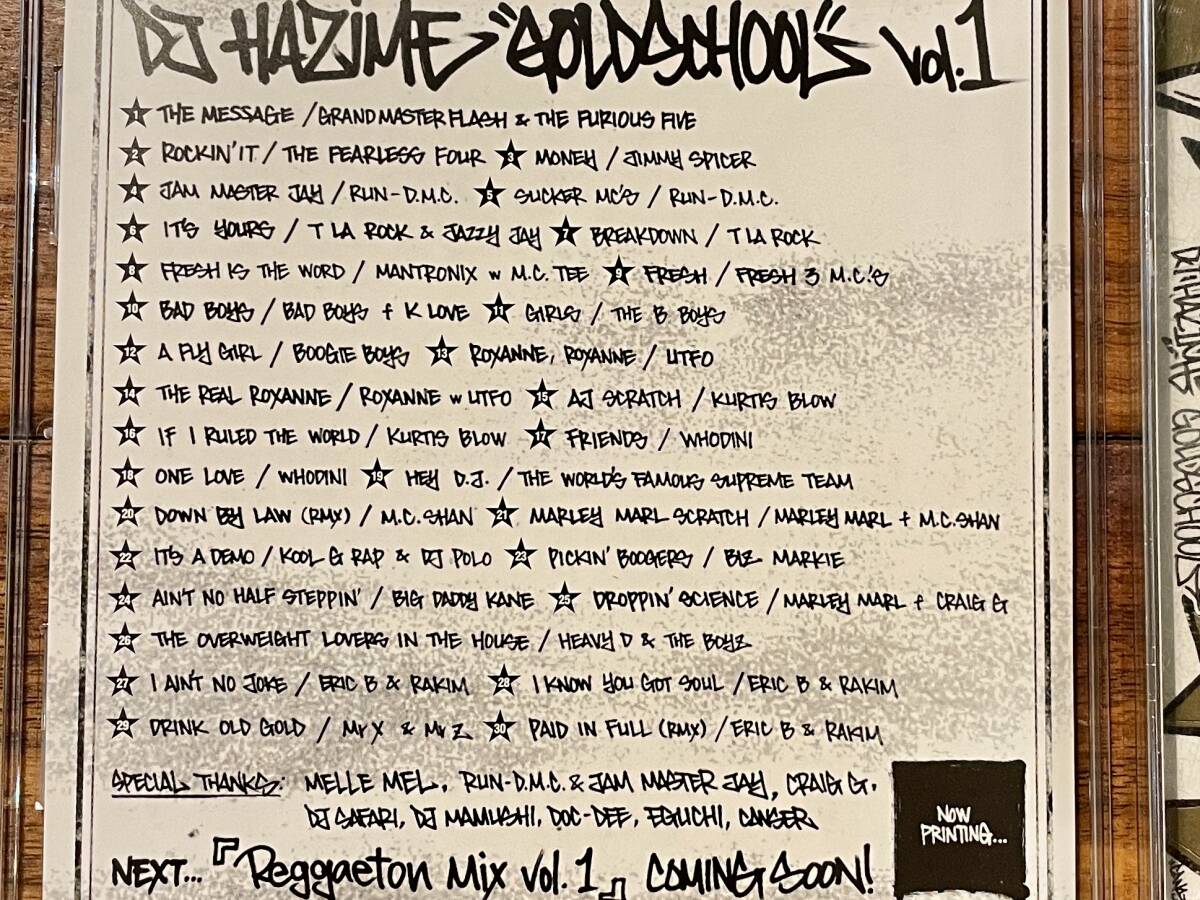 DJ HAZIME "GOLDSCHOOL" Vol.1
1 THE MESSAGE / GRANDMASTER FLASH & THE FURIOUS FIVE
2 ROCKIN' IT / THE FEARLESS FOUR 3 MONEY / JIMMY SPICER
4 JAM MASTER JAY / RUN-D.M.C. 5 SUCKER MC'S / RUN-D.M.C.
6 IT'S YOURS / T LA ROCK & JAZZY JAY 7 BREAKDOWN / T LA ROCK
8 FRESH IS THE WORD / MANTRONIX w M.C. TEE 9 FRESH / FRESH 3 M.C.'S
10 BAD BOYS / BAD BOYS f K LOVE 11 GIRLS / THE B BOYS
12 A FLY GIRL / BOOGIE BOYS 13 ROXANNE, ROXANNE / UTFO
14 THE REAL ROXANNE / ROXANNE w UTFO 15 AJ SCRATCH / KURTIS BLOW
16 IF I RULED THE WORLD / KURTIS BLOW 17 FRIENDS / WHODINI
18 ONE LOVE / WHODINI 19 HEY D.J. / THE WORLD'S FAMOUS SUPREME TEAM
20 DOWN BY LAW (RMX) / M.C. SHAN 21 MARLEY MARL SCRATCH / MARLEY MARL + M.C. SHAN
22 IT'S A DEMO / KOOL G RAP & DJ POLO 23 PICKIN' BOOGERS / BIZ MARKIE
24 AIN'T NO HALF STEPPIN' / BIG DADDY KANE 25 DROPPIN' SCIENCE / MARLEY MARL f CRAIG G
26 THE OVERWEIGHT LOVERS IN THE HOUSE / HEAVY D & THE BOYZ
27 I AIN'T NO JOKE / ERIC B & RAKIM 28 I KNOW YOU GOT SOUL / ERIC B & RAKIM
29 DRINK OLD GOLD / Mr X & Mr Z 30 PAID IN FULL (RMX) / ERIC B & RAKIM
SPECIAL THANKS: MELLE MEL, RUN-D.M.C. & JAM MASTER JAY, CRAIG G,
DJ SAFARI, DJ MAMUSHI, DOC-DEE, EGUCHI, CANSER
NOW
PRINTING...
NEXT... 『Reggaeton Mix Vol.1』 COMING SOON!
DJ HAZIME GOLDSCHOOL